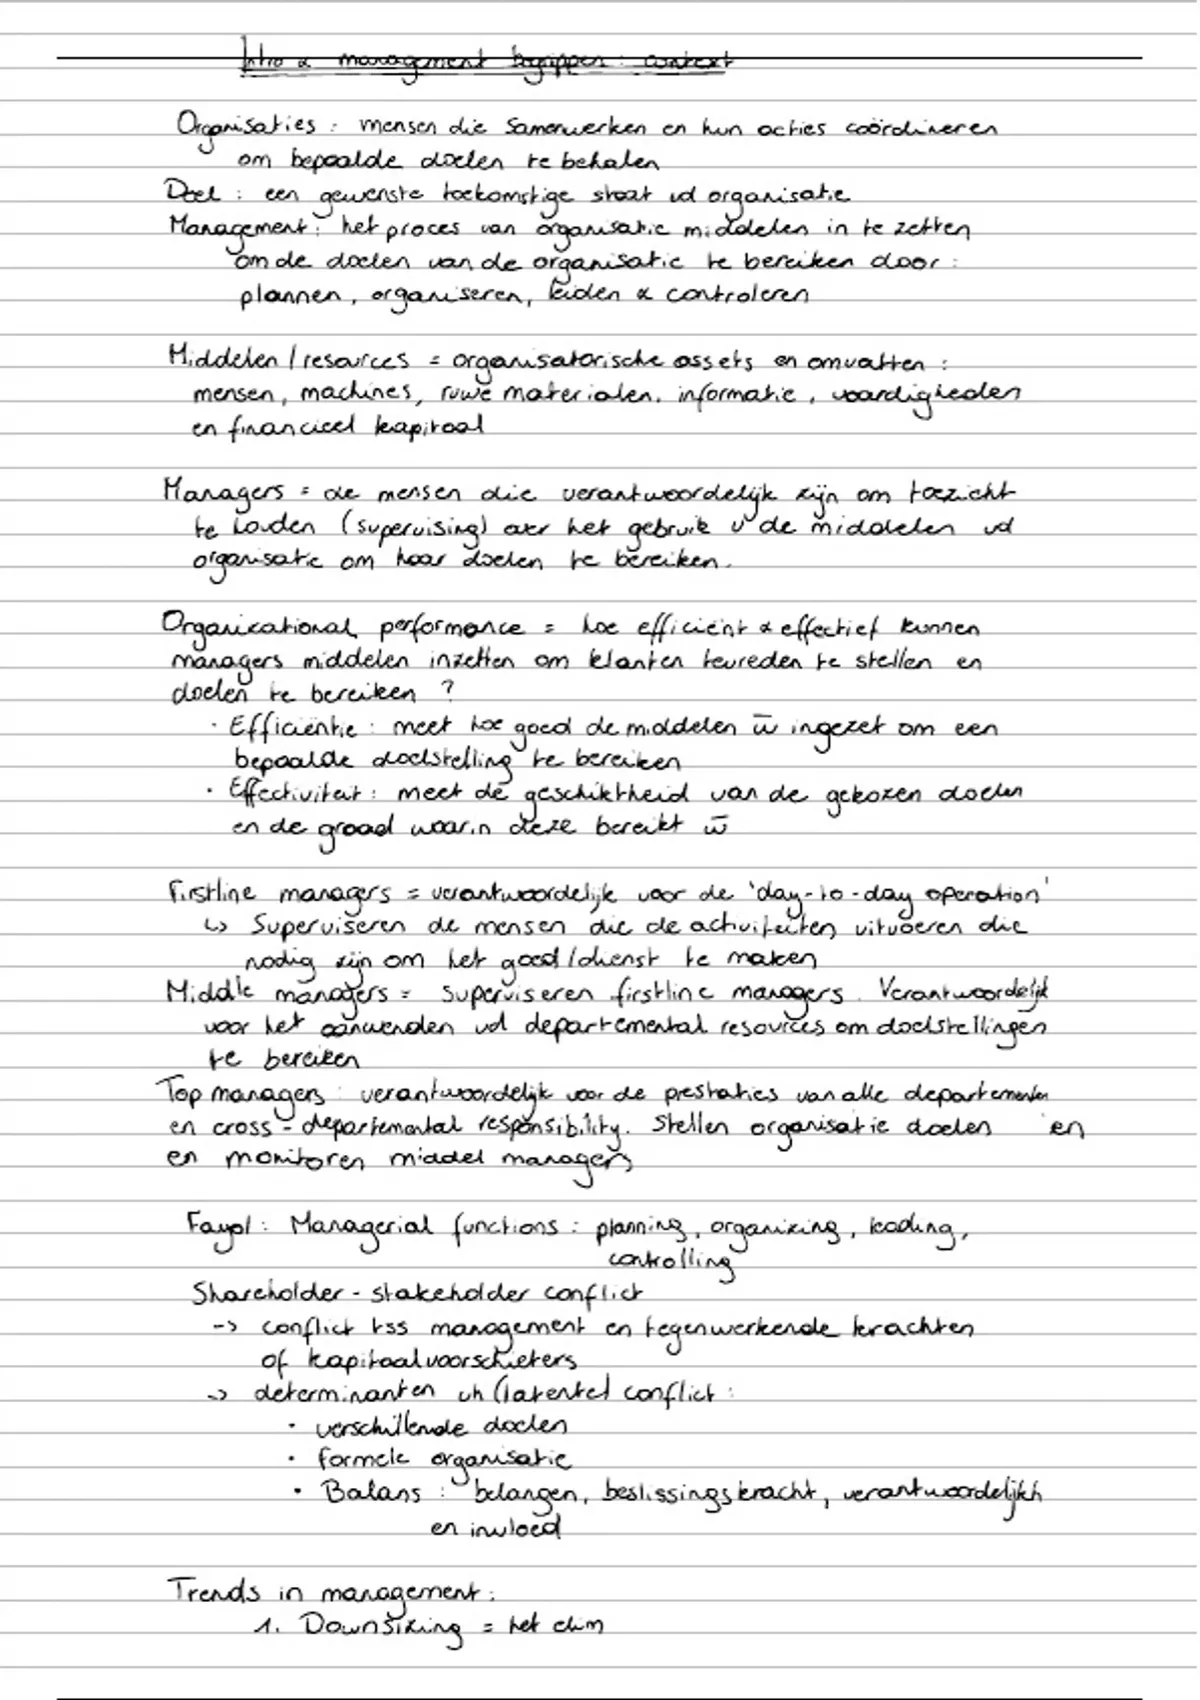 Intro & management begrippen : context
Organisaties : mensen die samenwerken en hun acties coördineren
om bepaalde doelen te behalen
Doel : een gewenste toekomstige staat vd organisatie
Management : het proces van organisatie middelen in te zetten
om de doelen van de organisatie te bereiken door :
plannen, organiseren, leiden & controleren
Middelen / resources = organisatorische assets en omvatten :
mensen, machines, ruwe materialen, informatie, vaardigheden
en financieel kapitaal
Managers = de mensen die verantwoordelijk zijn om toezicht
te houden (supervising) over het gebruik v de middelen vd
organisatie om haar doelen te bereiken.
Organizational performance = hoe efficiënt & effectief kunnen
managers middelen inzetten om klanten tevreden te stellen en
doelen te bereiken ?
· Efficiëntie : meet hoe goed de middelen w̄ ingezet om een
bepaalde doelstelling te bereiken
· Effectiviteit : meet de geschiktheid van de gekozen doelen
en de graad waarin deze bereikt w̄
Firstline managers = verantwoordelijk voor de 'day-to-day operation'
↳ Superviseren de mensen die de activiteiten uitvoeren die
nodig zijn om het goed/dienst te maken
Middle managers = superviseren firstline managers. Verantwoordelijk
voor het aanwenden vd departemental resources om doelstellingen
te bereiken
Top managers : verantwoordelijk voor de prestaties van alle departementen
en cross-departemental responsibility. Stellen organisatie doelen en
en monitoren middel managers
Fayol : Managerial functions : planning, organizing, leading,
controlling
Shareholder - stakeholder conflict
-> conflict tss management en tegenwerkende krachten
of kapitaalvoorschieters
-> determinanten vh (latente) conflict :
· verschillende doelen
· formele organisatie
· Balans : belangen, beslissingskracht, verantwoordelijkh
en invloed
Trends in management :
1. Downsizing = het dim